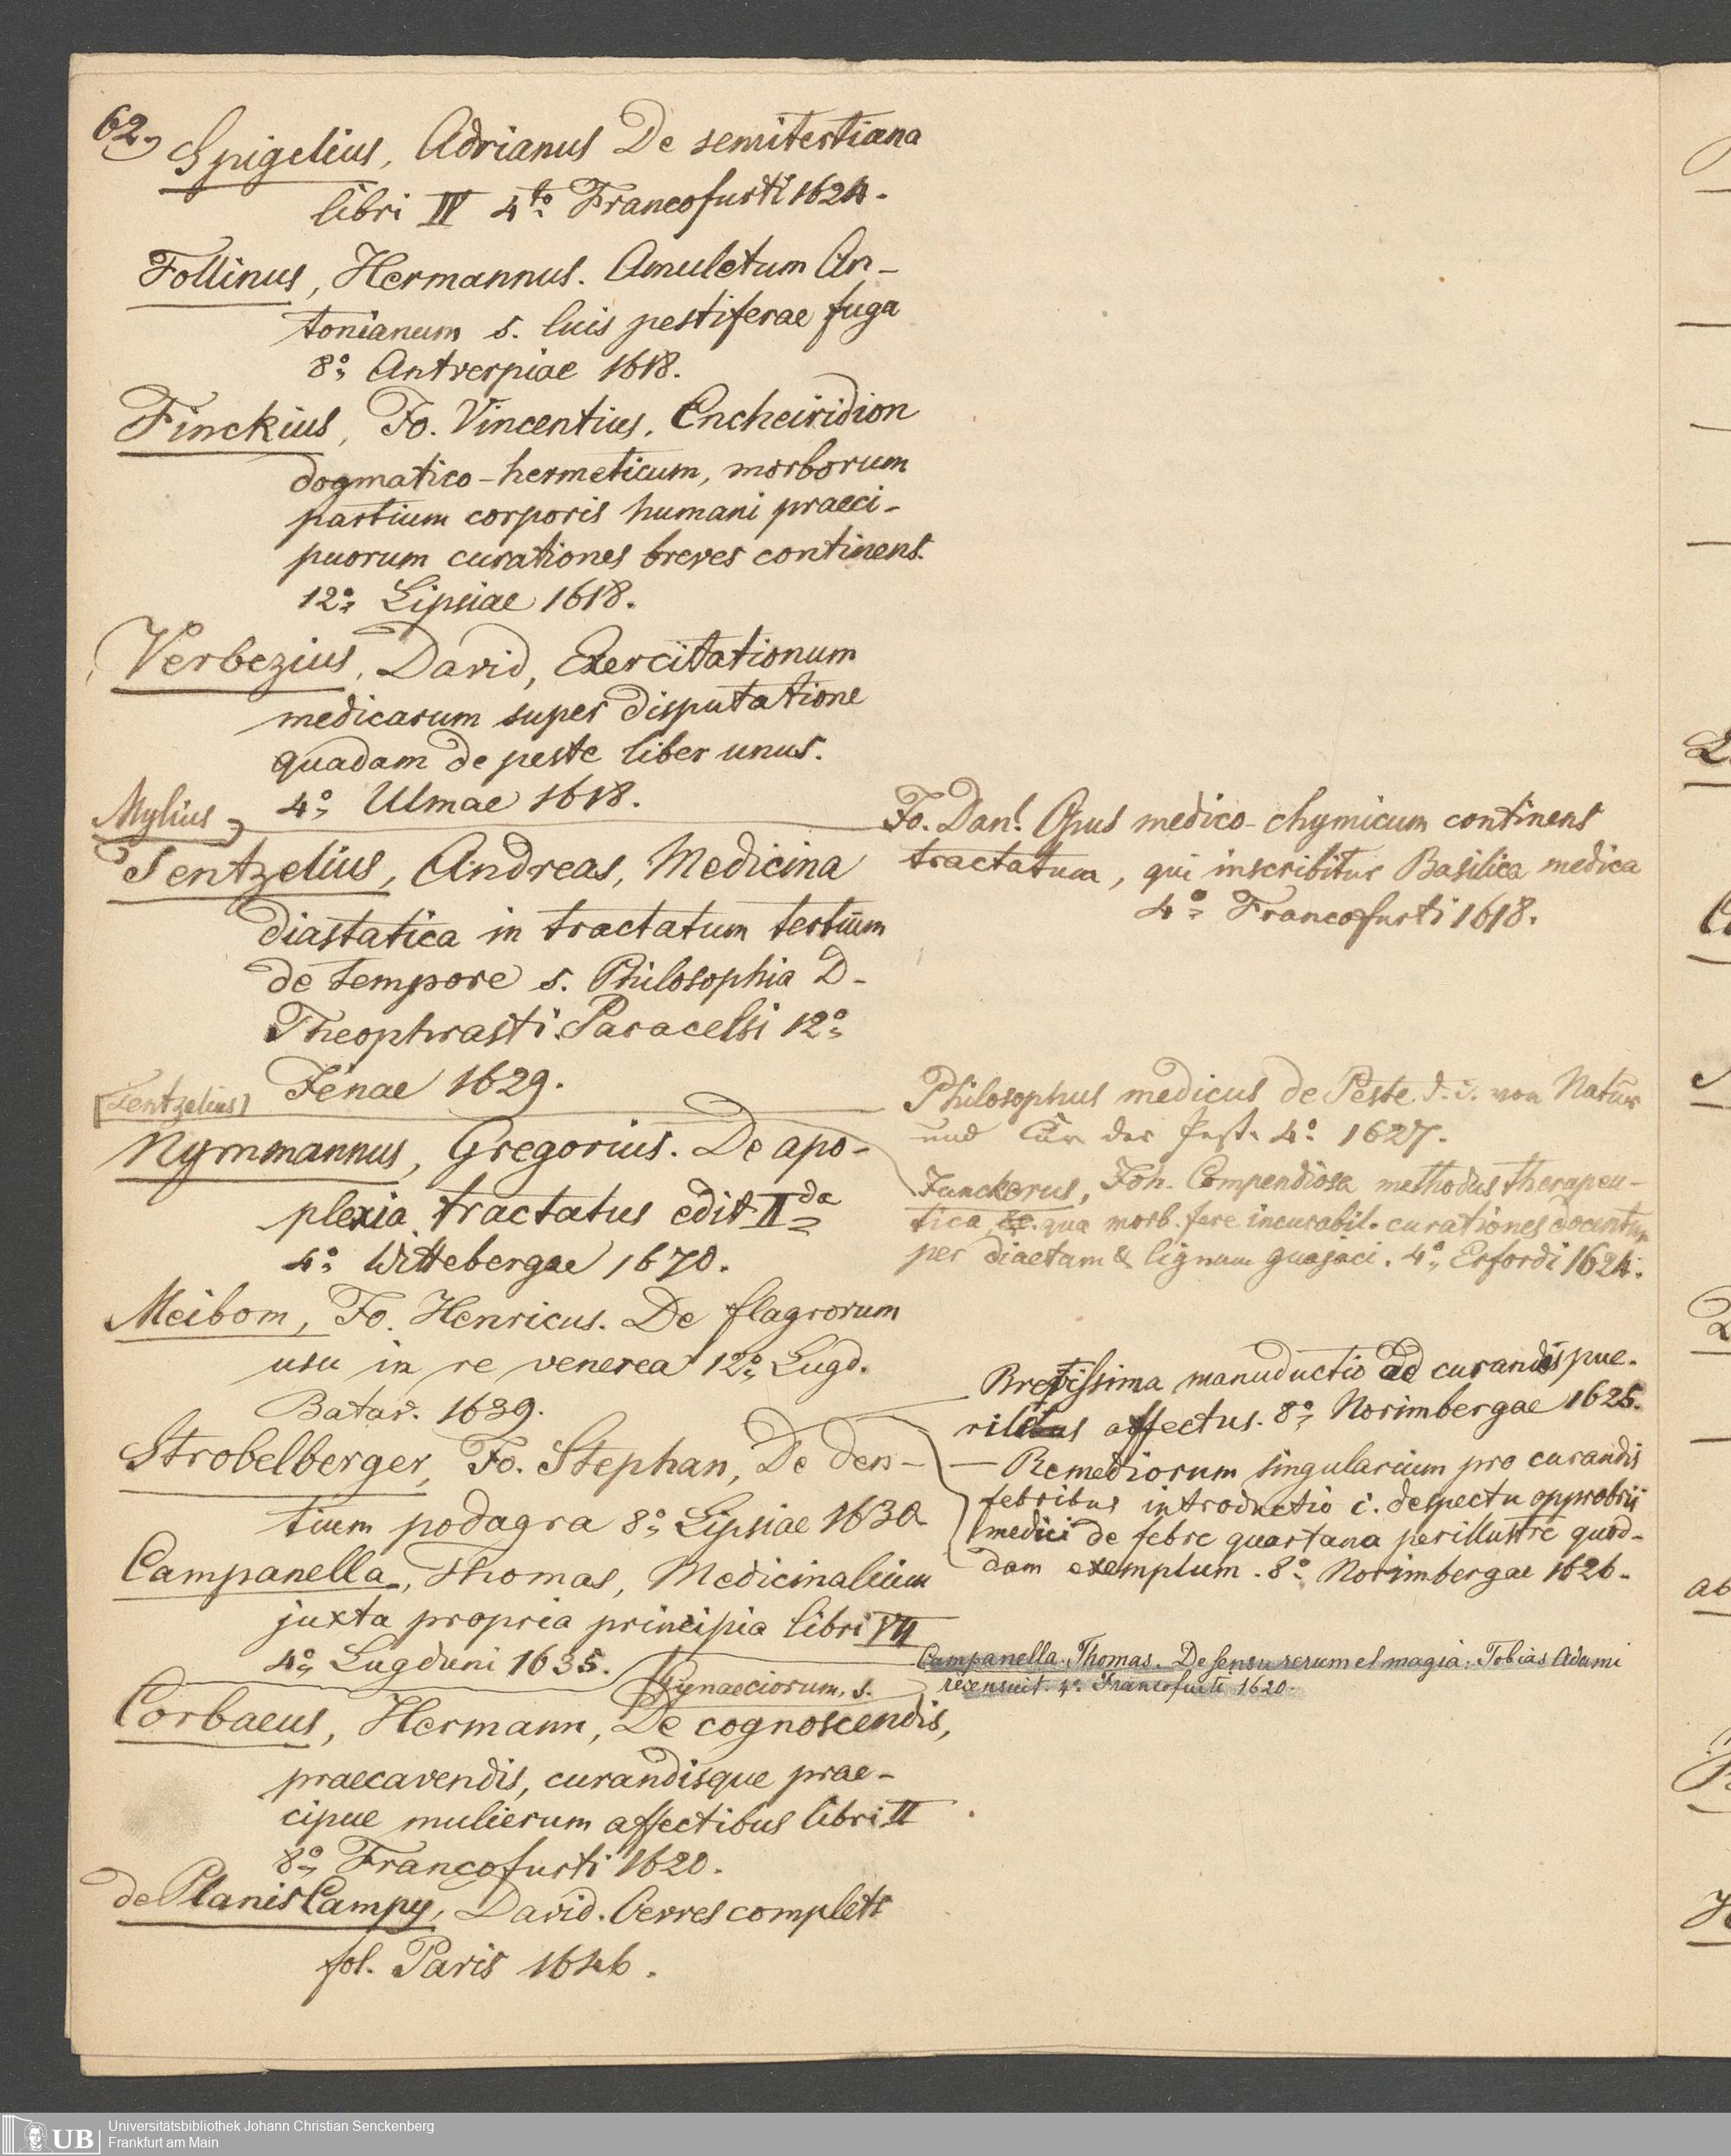 62.
Spigelius, Adrianus De semitertiana
libri IV 4to. Francofurti 1624.
Follinus, Hermannus. Amuletum An-
tonianum s. luis pestiferae fuga
8o. Antverpiae 1618.
Finckius, Jo. Vincentius. Encheiridion
dogmatico-hermeticum, morborum
partium corporis humani praeci-
puorum curationes breves continens.
12o. Lipsiae 1618.
Verbezius, David, Exercitationum
medicarum super disputatione
quadam de peste liber unus.
4o. Ulmae 1618.
Mylius,
Jo. Dan. Opus medico-chymicum continens
tractatum, qui inscribitur Basilica medica
4o. Francofurti 1618.
Tentzelius, Andreas, Medicina
diastatica in tractatum tertium
de tempore s. Philosophia D.
Theophrasti Paracelsi 12o.
Jenae 1629.
[Tentzelius]
Philosophus medicus de Peste d. i. von Natur
und Cur der Pest. 4o. 1627.
Junckerus, Joh. Compendiosa methodus therapeu-
tica qua morb. fere incurabil. curationes docentur
per diaetam & lignum guajaci. 4o. Erfordi 1624.
Nymmannus, Gregorius. De apo-
plexia tractatus edit IIda
4o. Wittebergae 1670.
Meibom, Jo. Henricus. De flagrorum
usu in re venerea 12o. Lugd.
Batav. 1639.
Strobelberger, Jo. Stephan, De den-
tium podagra 8o. Lipsiae 1630
Brevissima manuductio ad curandos pue-
riles affectus. 8o. Norimbergae 1625.
— Remediorum singularium pro curandis
febribus introductio i. despectu opprobrij
medici de febre quartana perillustre quod-
dam exemplum. 8o. Norimbergae 1626.
Campanella, Thomas, Medicinalium
juxta propria principia libri VII
4o. Lugduni 1635.
Campanella. Thomas. De sensu rerum et magia. Tobias Adami
recensuit. 4o. Francofurti 1620.
Gynaeciorum, s.
Corbaeus, Hermann, De cognoscendis,
praecavendis, curandisque prae-
cipue mulierum affectibus libri II
8o. Francofurti 1620.
de Planis Campy, David. Oevres complett
fol. Paris 1646.
Universitätsbibliothek Johann Christian Senckenberg
Frankfurt am Main
UB